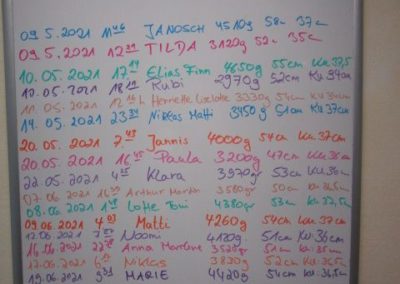 09.5.2021 11 46 JANOSCH 4510g 58c 37c
09.5.2021 12 39 TILDA 3120g 52c 35c
10.05.2021 17 14 Elias Finn 4650g 55cm Ku 37,5
12.05.2021 18 Rubi 2970g 52cm Ku 34cm
.05.2021 12 h Henriette Liselotte 3330g 54cm
14.05.2021 23 34 Niklas Matti 3450g 51cm Ku 37cm
20.05.2021 7 43 Jannis 4000g 54cm Ku. 37cm
20.05.2021 16 Paula 3200g 47cm Ku. 36cm
22.05.2021 4 Klara 3970gr 53cm Ku 36,5cm
07.06.2021 16 30 Arthur 3580gr 50cm
08.06.2021 1 Lotte Toni 4380gr 53cm Ku 37,5c
09.06.2021 4 03 Matti 4260g 54cm Ku. 37cm
12.06.2021 7 Noomi 4170g. 51cm Ku 36cm
16.06.2021 22 Anna 3520gr 51cm
17.06.2021 6 Niklas 3820g 52cm
19.06.2021 MARIE 4420g 54cm Ku. 36,5c